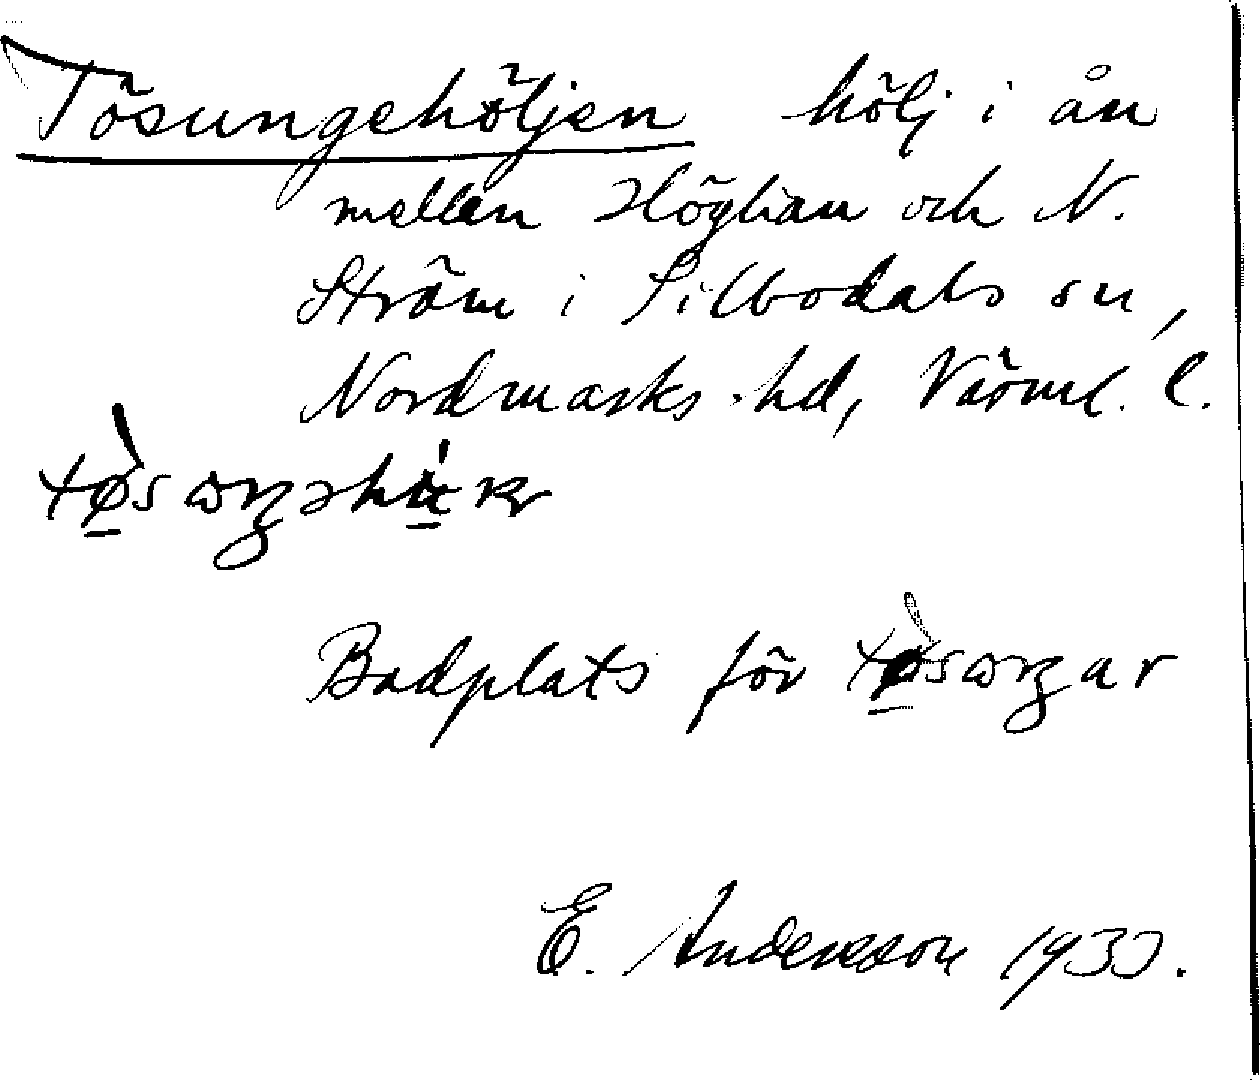 Tösungehöljen hölj i ån
mellan Höglian och N.
Ström i Silbodals sn,
Nordmarks hd, Värml. l.
Badplats för
E. Andersson 1933.